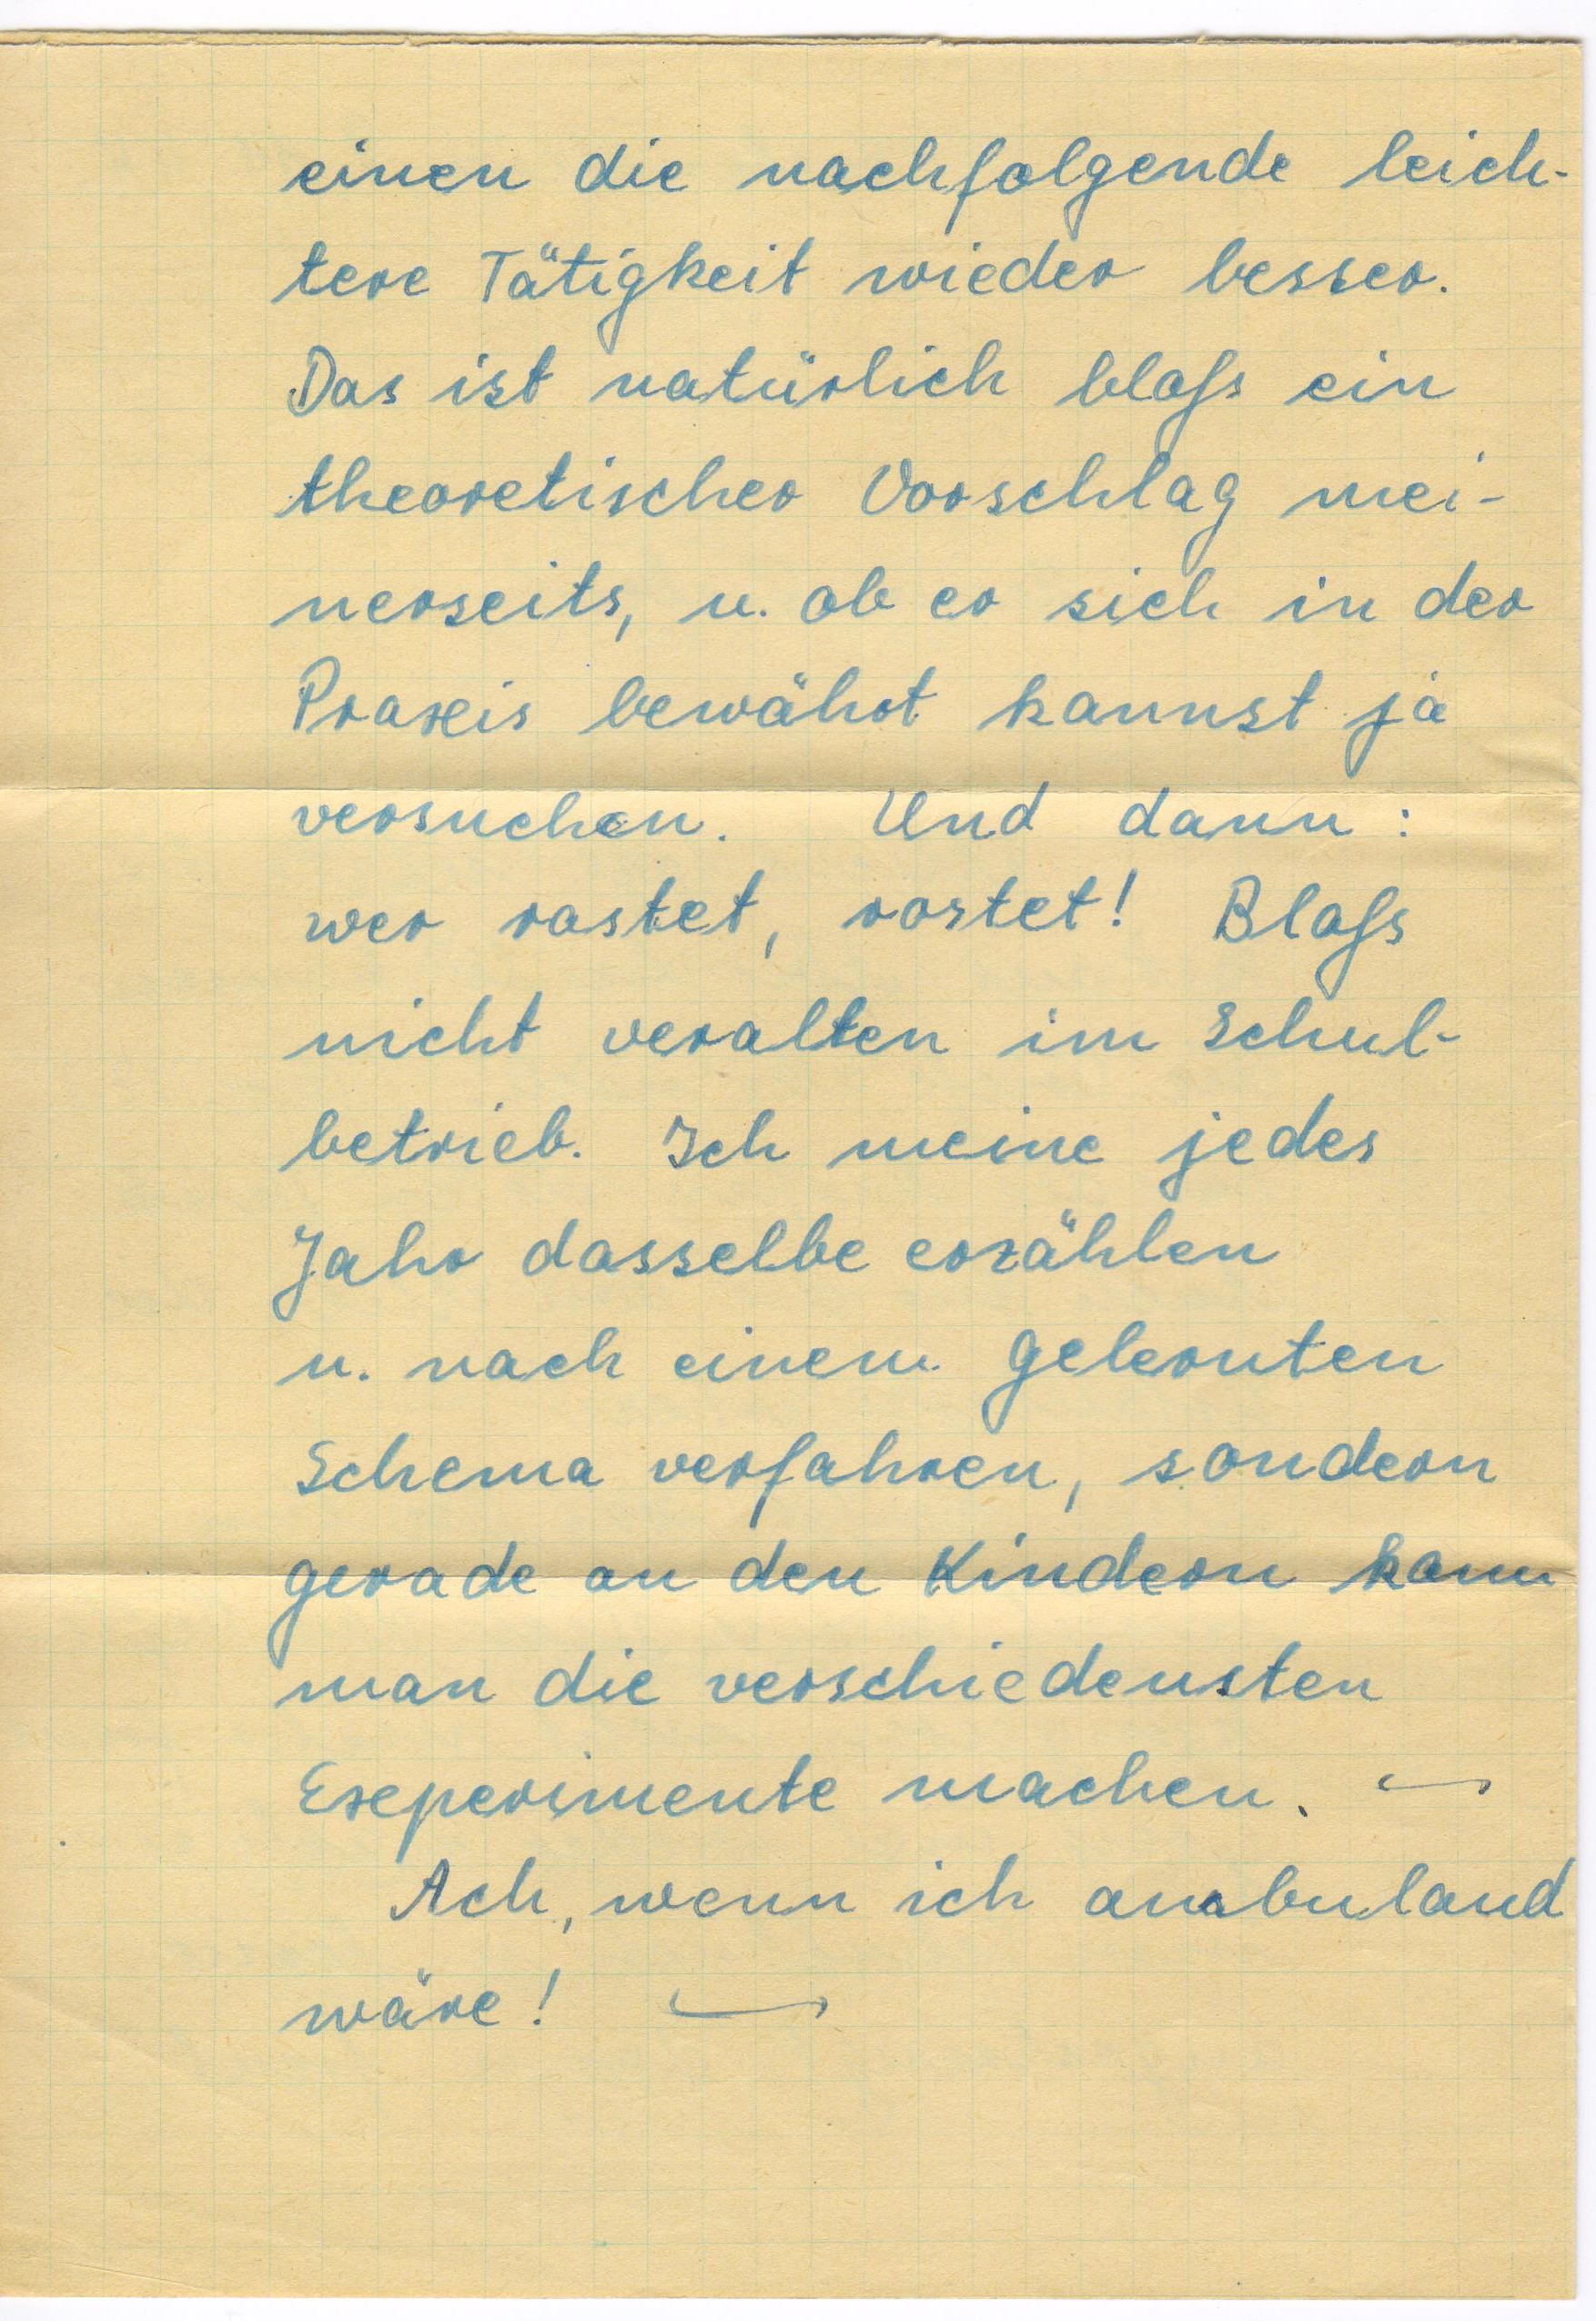 einen die nachfolgende leich-
tere Tätigkeit wieder besser.
Das ist natürlich bloß ein
theoretischer Vorschlag mei-
nerseits, u. ob er sich in der
Praxis bewährt kannst ja
versuchen. Und dann:
wer rastet, rostet! Bloß
nicht veralten im Schul-
betrieb. Ich meine jedes
Jahr dasselbe erzählen
u. nach einem gelernten
Schema verfahren, sondern
gerade an den Kindern kann
man die verschiedensten
Experimente machen. —
Ach, wenn ich ambuland
wäre! —